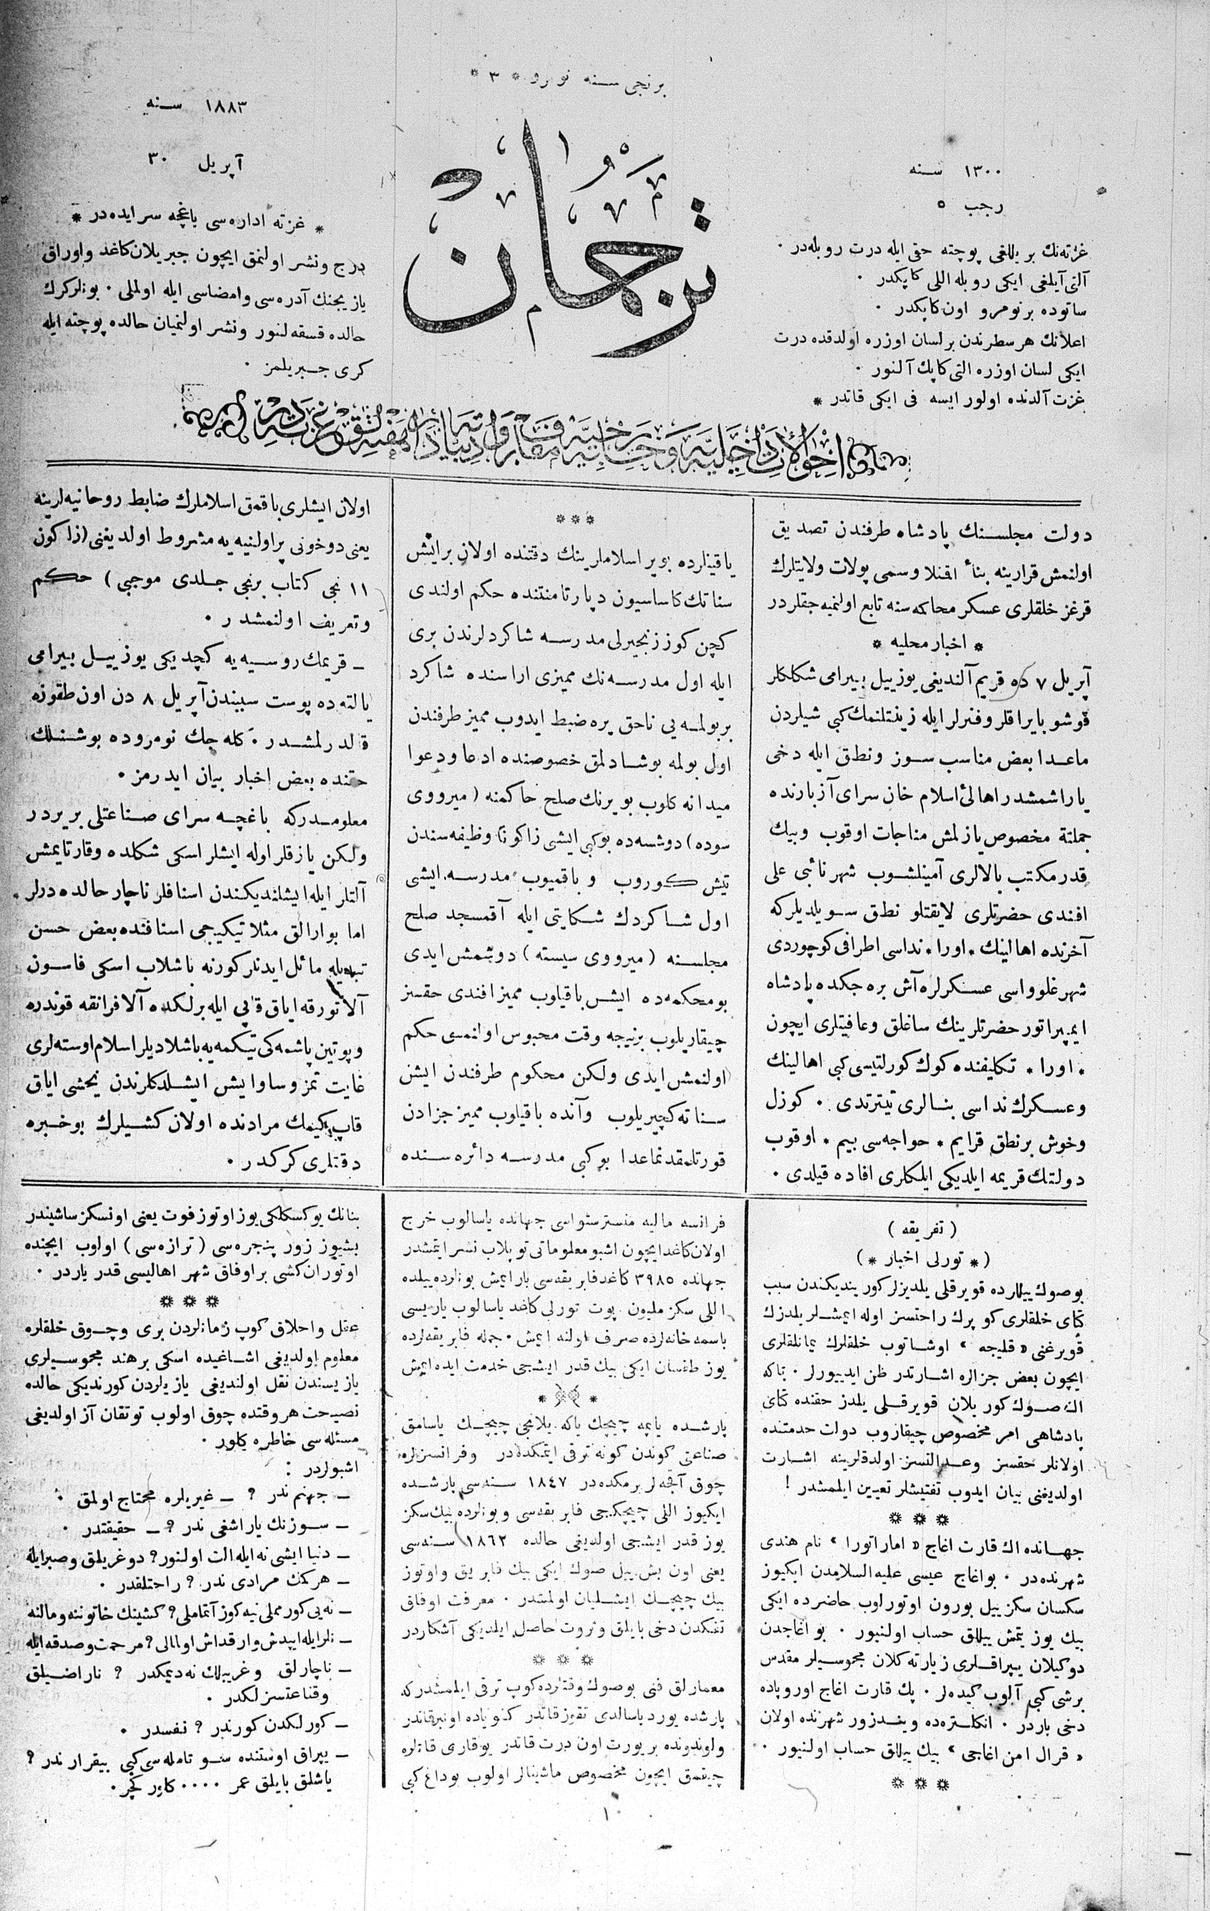 برنجی سنه نومرو * ٣ *
١٣٠٠ سنه
رجب ٥
غزته‌نك بر ییللغی پوچته حقی ایله درت روبله‌در ٠
آلتی آیلغی ایکی روبله اللی کاپکدر ٠
ساتوده بر نومرو اون کاپکدر ٠
اعلانك هر سطرندن بر لسان اوزره اولدقده درت
ایکی لسان اوزره التی کاپك آلنور ٠
غزت آلدنده اولور ایسه فی ایکی قاتدر *
ترجمان
١٨٨٣ سنه
آپریل ٣٠
* غزته اداره‌سی باغچه سرایده‌در *
درج ونشر اولنمق ایچون جبریلان کاغد واوراق
یازیجینك آدره‌سی وامضاسی ایله اولملی ٠ بونلر کرك
حالده قسقه‌لنور ونشر اولنمیان حالده پوچته ایله
کری جبریلمز ٠
دولت مجلسنك پادشاه طرفندن تصدیق
اولنمش قرارینه بناءً اقمنلا وسمی پولات ولایتلرك
قرغز خلقلری عسکر محاکمه‌سنه تابع اولنمیه‌جقلردر
* اخبار محلیه *
آپریل ٧ ده قریم آلندیغی یوزییل بیرامی شکلکلر
قوشو بایراقلر وفنرلر ایله زینتلنمك کبی شیلردن
ماعدا بعض مناسب سوز ونطق ایله دخی
یاراشمشدر اهالئ اسلام خان سرای آزبارنده
جملتة مخصوص یازلمش مناجات اوقوب وبیك
قدر مکتب بالالری آمینلشوب شهر نائبی علی
افندی حضرتلری لایقتلو نطق سویلدیلرکه
آخرنده اهالینك ٠ اورا ٠ نداسی اطرافی کوچوردی
شهر غلوواسی عسکرلره آش بره‌جکده پادشاه
ایمپراتور حضرتلرینك ساغلق وعافیتلری ایچون
٠ اورا ٠ تکلیفنده کوك کورلتیسی کبی اهالینك
وعسکرك نداسی بنالری تیترتدی ٠ کوزل
وخوش بر نطق قرایم ٠ خواجه‌سی بیم ٠ اوقوب
دولتك قریمه ایلدیکی ایلکلری افاده قیلدی ٠
* * *
یاقینلرده بویر اسلاملرینك دقتنده اولان بر ایش
سناتك کاساسیون دپارتامنتنده حکم اولندی
کچن کوز زنجیرلی مدرسه شاکردلرندن بری
ایله اول مدرسه‌نك ممیزی اراسنده شاکرد
بر بولمه‌یی ناحق یره ضبط ایدوب ممیز طرفندن
اول بولمه بوشادلمق خصوصنده ادعا ودعوا
میدانه کلوب بویرنك صلح حاکمنه (میرووی
سوده) دوشسه‌ده بوکبی ایشی زاکونا وظیفه‌سندن
تیش کوروب وباقمیوب مدرسه ایشی
اول شاکردك شکایتی ایله آقمسجد صلح
مجلسنه (میرووی سیسته) دوشمش ایدی
بو محکمه‌ده ایش باقیلوب ممیز افندی حقسز
چیقاریلوب برنیجه وقت محبوس اولنمسی حکم
اولنمش ایدی ولکن محکوم طرفندن ایش
سناته کچیریلوب وآنده باقیلوب ممیز جزادن
قورتلمقدنماعدا بوکبی مدرسه دائره‌سنده
اولان ایشلری باقمق اسلاملرك ضابط روحانیه‌لرینه
یعنی دوخونی پراولنیه‌یه مشروط اولدیغی (زاکون
١١ نجی کتاب برنجی جلدی موجبی) حکم
وتعریف اولنمشدر ٠
— قریمك روسیه‌یه کچدیکی یوزییل بیرامی
یالته‌ده پوست سببندن آپریل ٨ دن اون طقوزه
قالدرلمشدر ٠ کله‌جك نومروده بوشنلك
حقنده بعض اخبار بیان ایدرمز ٠
معلومدرکه باغچه سرای صناعتلی بر یردر
ولکن یازقلر اوله ایشلر اسکی شکلده وقارتایمش
آلتلر ایله ایشلندیکندن اسنافلر ناچار حالده‌درلر
اما بوارالق مثلا تیکیجی اسنافنده بعض حسن
تبدیله مائل ایدنلر کورنه باشلاب اسکی فاسون
آلاتورقه ایاق قابی ایله برلکده آلافرانقه قوندره
وپوتین پاشمه کی تیکمه‌یه باشلادیلر اسلام اوسته‌لری
غایت تمز وساو ایش ایشلدکلرندن یخشی ایاق
قاپ کیمك مرادنده اولان کشیلرك بو خبره
دقتلری کرکدر ٠
(تفریقه)
(* تورلی اخبار *)
بوصوك ییللرده قویرقلی یلدیزلر کورینديکندن سبب
ختای خلقلری کوپرك راحتسز اوله ایمشلر یلدزك
قویرغنی « قلیجه » اوشاتوب خلقلرك یمانلقلری
ایچون بعض جزالره اشارتدر ظن ایدیورلر ٠ بناکه
اك صوك کوریلان قویرقلی یلدز حقنده ختای
پادشاهی امر مخصوص چیقازوب دولت خدمتنده
اولانلر حقسز وعدالتسز اولدقلرینه اشارت
اولدیغنی بیان ایدوب تفتیشلر تعیین ایلمشدر !
* * *
جهانده اك قارت اغاج « اماراتورا » نام هندی
شهرنده‌در ٠ بو اغاج عیسی علیه السلامدن ایکیوز
سکسان سکز ییل بورون اوتورلوب حاضرده ایکی
بیك یوز یتمش ییللق حساب اولنیور ٠ بو اغاجدن
دوکیلان یپراقلری زیارته کلان مجوسیلر مقدس
برشی کبی آلوب کیده‌لر ٠ پك قارت اغاج اوروپاده
دخی باردر ٠ انکلتره‌ده وبندزور شهرنده اولان
« قرال امن اغاجی » بیك ییللق حساب اولنیور ٠
* * *
فرانسه مالیه منسترستواسی جهانده یاسالوب خرج
اولان کاغد ایچون اشبو معلوماتی توپلاب نشر ایتمشدر
جهانده ٣٩٨٥ کاغد فابریقه‌سی بار ایمش بونلرده ییلده
اللی سکز ملیون پوت تورلی کاغد یاسالوب یاریسی
باسمه خانه‌لرده صرف اولنه ایمش ٠ جمله فابریقه‌لرده
یوز طقسان ایکی بیك قدر ایشجی خدمت ایده ایمش
* *
پارشده یاپمه چیچك یاکه یلانجی چیچك یاسامق
صناعتی کوندن کونه ترقی ایتمکده‌در وفرانسزلره
چوق آقچه‌لر بیرمکده‌در ١٨٤٧ سنه‌سی پارشده
ایکیوز اللی چیچکجی فابریقه‌سی وبونلرده بیك سکز
یوز قدر ایشجی اولدیغی حالده ١٨٦٢ سنه‌سی
یعنی اون بش ییل صوك ایکی بیك فابریق واوتوز
بیك چیچك ایشلیان اولمشدر ٠ معرفت اوفاق
تفکدن دخی بایلق وثروت حاصل ایلدیکی آشکاردر
* * *
معمارلق فنی بوصوك وقتلرده کوپ ترقی ایلمشدرکه
پارشده یورد یاسالدی تقوز قاتدر کنویاده اونبر قاتدر
ولوندونده بر یورت اون درت قاتدر یوقاری قاتلره
چیقمق ایچون مخصوص ماشینالر اولوب بوداغ کبی
بنانك یوکسکلکی یوز اوتوز فوت یعنی اونسکز ساشیندر
بشیوز زور پنجره‌سی (ترازه‌سی) اولوب ایچنده
اوتوران کشی بر اوفاق شهر اهالیسی قدر باردر ٠
* * *
عقل واحلاق کوپ زمانلردن بری وچوق خلقلره
معلوم اولدیغی اشاغیده اسکی بر هند مجوسیلری
یازیسندن نقل اولندیغی یازیلردن کورندیکی حالده
نصیحت هر وقتده چوق اولوب توتقان آز اولدیغی
مسئله‌سی خاطره کلور ٠
اشبولردر :
— جهنم ندر ? — غیریلره محتاج اولمق ٠
— سوزنك یاراشغی ندر ? — حقیقتدر ٠
— دنیا ایشی نه ایله الت اولنور ? دوغریلق وصبر ایله
— هرکمك مرادی ندر ? راحتلقدر ٠
— نه‌یی کورمملی نیه کوز آتماملی ? کشینك خاتوننه ومالنه
— نلر ایله ایپدش وارقداش اولمالی ? مرحمت وصدقه ایله
— ناچارلق وغریبلك نه دیمکدر ? ناراضیلق
وقناعتسزلکدر ٠
— کورلکدن کورندر ? نفسدر ٠
— یپراق اوستنده سو تامله‌سی کبی بیقرار ندر ?
یاشلق بایلق عمر ٠٠٠٠ کلور کچر ٠
١٠